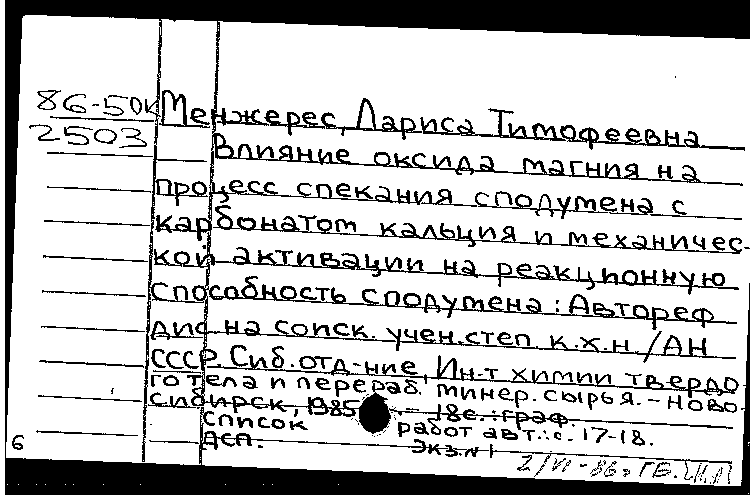 86-50к Менжерес, Лариса Тимофеевна
2503
Влияние оксида магния на
процесс спекания сподумена с
карбонатом кальция и механичес-
кой активации на реакционную
способность сподумена : Автореф
дис на соиск. учен.степ. к.х.н./АН
СССР. Сиб.отд-ние, Ин-т химии твердо-
го тела и перераб. минер. сырья.-Ново-
сибирск, 1985 - 18с.:граф.
Список работ авт.: с. 17-18.
дсп. экз.N 1
6